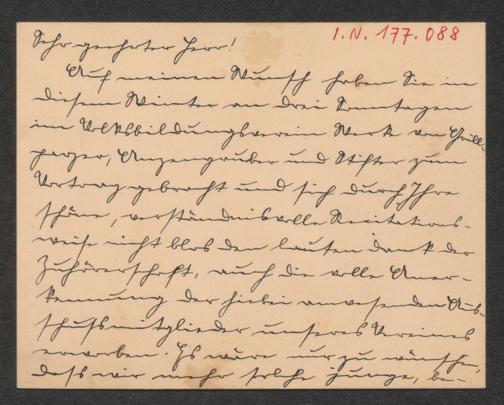 I.N. 177.088
Sehr geehrter Herr!
Auf meinen Wunsch haben Sie in
diesem Winter an drei Sonntagen
im Volksbildungsverein Werke von Grill-
parzer, Anzengruber und Stifter zum
Vortrag gebracht und sich durch Ihre
schöne, verständnisvolle Recitations-
weise nicht blos den lauten Dank der
Zuhörerschaft, auch die volle Aner-
kennung der hiebei anwesenden Aus-
schußmitglieder unseres Vereines
erworben. Es wäre nur zu wünschen,
daß wir mehr solche junge, be-